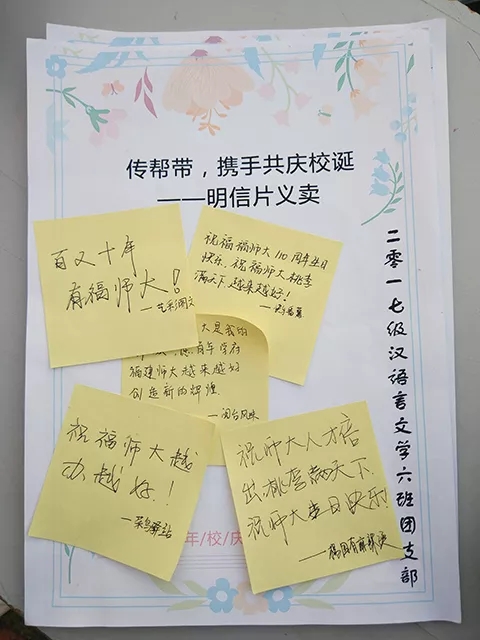 传帮带，携手共庆校诞
——明信片义卖
二零一七级汉语言文学六班团支部
百又十年
有福师大！
祝福福师大110周年生日
快乐，祝福师大桃李
满天下，越来越好！
大是我的
百年学府
福建师大越来越好
创造新的辉煌
——闽台风味
祝福师大越
办越好！
——菜鸟驿站
祝师大人才倍
出，桃李满天下，
祝师大生日快乐！
年/校/庆